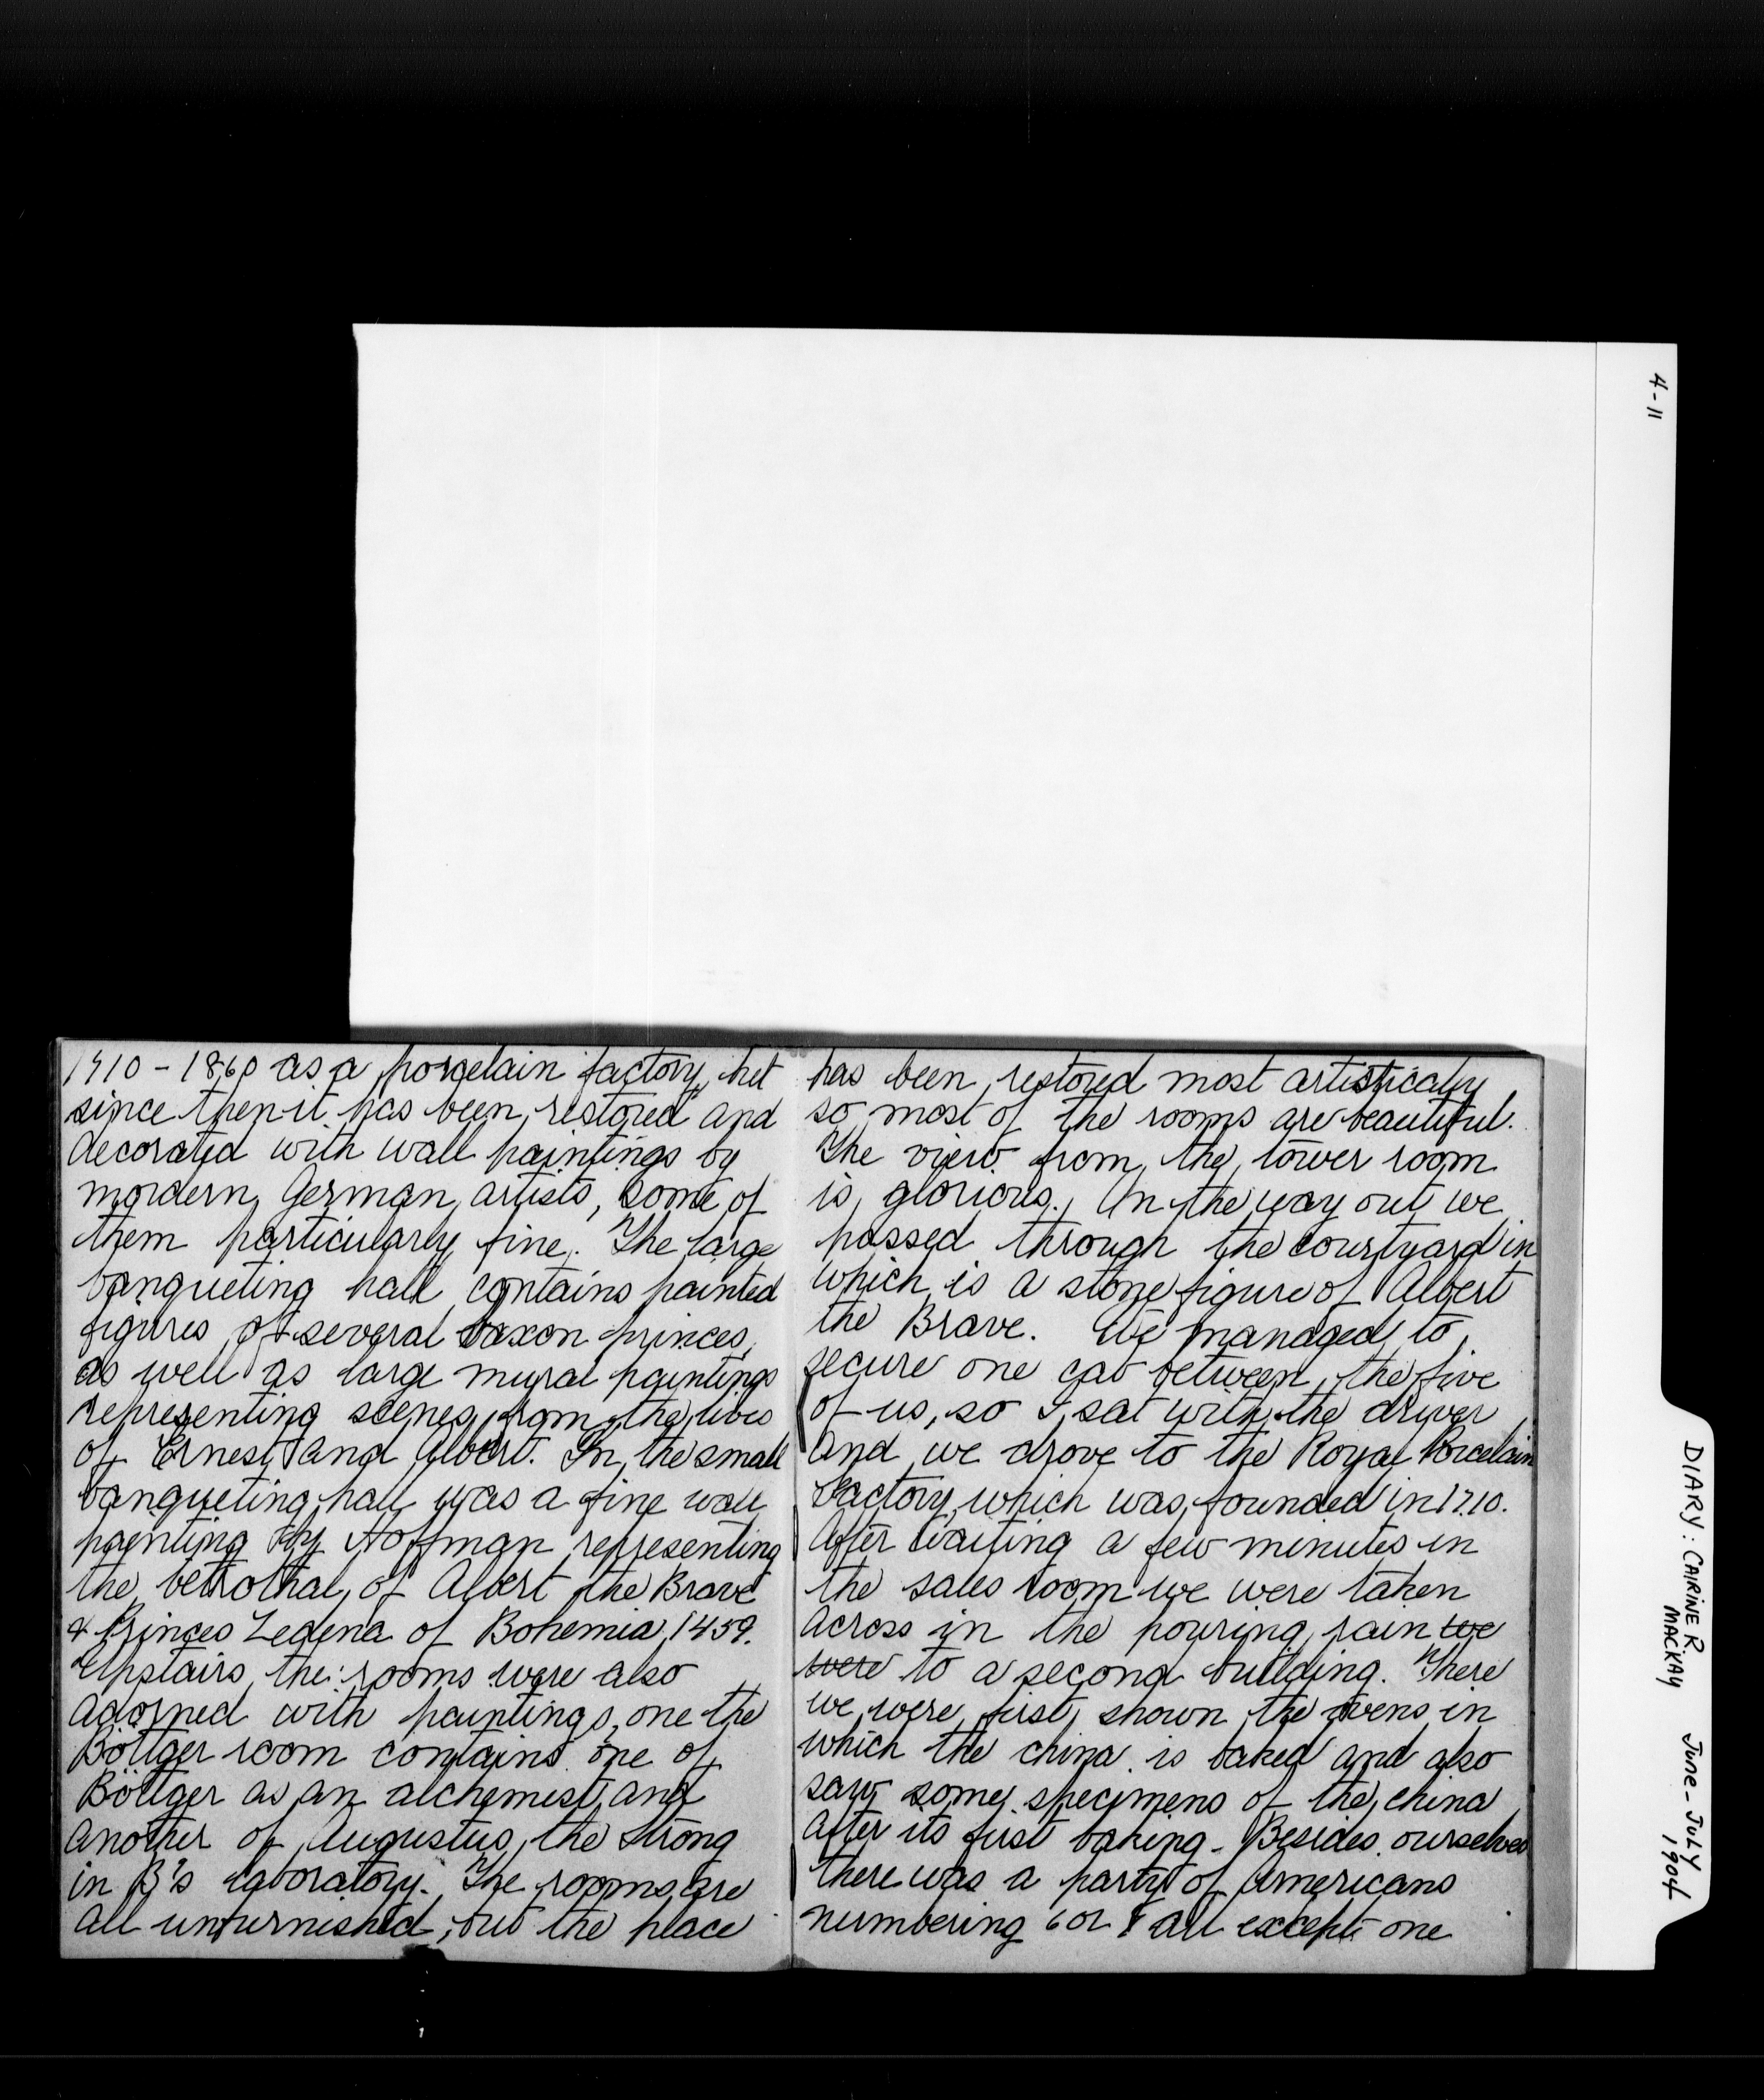 1710 - 1860 as a porcelain factory, but
since then it has been restored and
decorated with wall paintings by
mordern German artists, some of
them particularly fine. The large
banqueting hall contains painted
figures of several Saxon princes,
as well as large mural paintings
representing scenes from the lives
of Ernest and Albert. In the small
banqueting hall was a fine wall
painting by Hoffman representing
the betrothal of Albert the Brave
& Princes Zedena of Bohemia, 1459.
Upstairs the rooms were also
adorned with paintings, one the
Böttger room contains one of
Böttger as an alchemist and
another of Augustus, the Strong
in B's laboratory. The rooms are
all unfurnished, but the place
has been restored most artistically
so most of the rooms are beautiful.
The view from the tower room
is glorious. On the way out we
passed through the courtyard in
which is a stone figure of Albert
the Brave. We managed to
secure one cab between the five
of us, so I sat with the driver
and we drove to the Royal Porcelain
Factory, which was founded in 1710.
After waiting a few minutes in
the sales room we were taken
across in the pouring rain we
were to a second building. There
we were first shown the ovens in
which the china is baked and also
saw some specimens of the china
after its first baking - Besides ourselves
there was a party of Americans
numbering 6 or 8 all except one
4-11
DIARY: CAIRINE R. MACKAY
June - July 1904